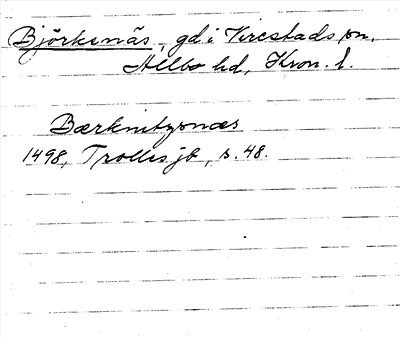 Björkenäs, gd i Virestads sn,
Allbo hd, Kron. l.
Bærknitzønæs
1498, Trolles jb, s. 48.